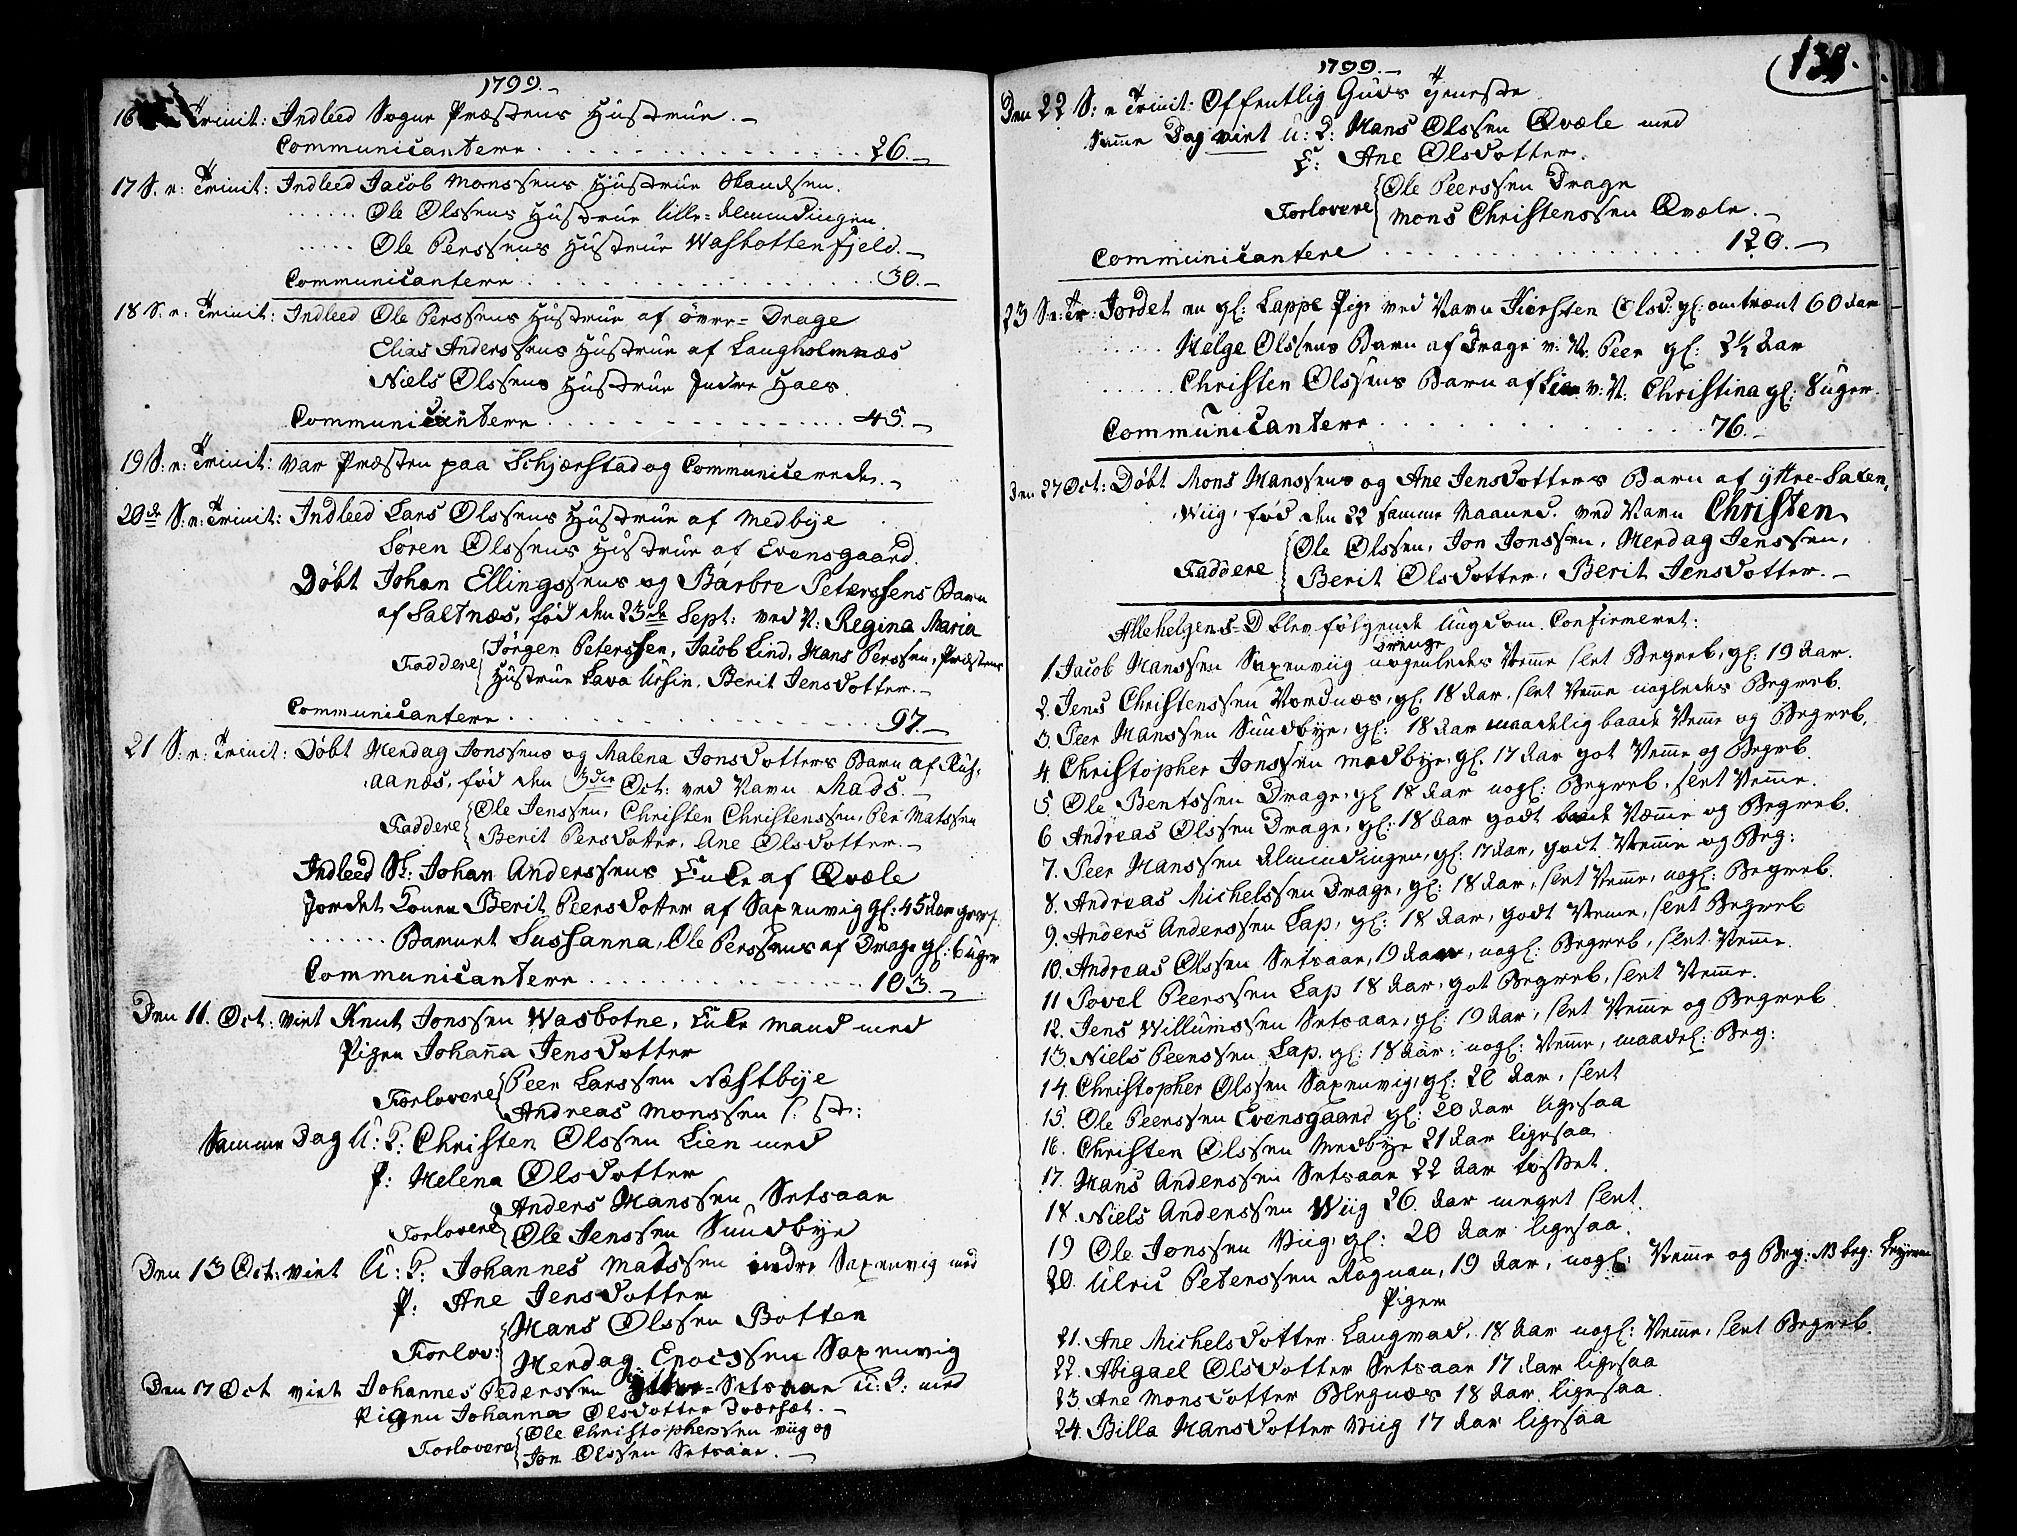 1799.
16 Trinit: Indleed Sogne Præstens Hustrue.
Communicantere . . . 26.
17 S. e: Trinit: Indleed Jacob Monssens Hustrue Skandsen.
. . . . . . Ole Olssens Hustrue lille-Almindingen
. . . . . Ole Perssens Hustrue Wasbottenfjeld.
Communicantere . . . 30.
18 S. e: Trinit: Indleed Ole Perssens Hustrue af øvre-Drage
Elias Anderssens Hustrue af Langholmnæs
Niels Olssens Hustrue Indre Haes
Communicantere . . . 45.
19 S: e: Trinit: var Præsten paa Schjærstad og Communicerede.
20de S: e: Trinit: Indleed Lars Olssens Hustrue af Medbye
Søren Olssens Hustrue af Evensgaard.
Døbt Johan Ellingssens og Barbre Peterssens Barn
af Saltnæs, fød den 23de Sept: ved N: Regina Maria
Faddere Jørgen Peterssen, Jacob Lind, Hans Perssen, Præstens
Hustrue Lava Ursin, Berit Jensdotter.
Communicantere . . . 97.
21 S: e: Trinit: Døbt Herdag Jonssens og Malena Jonsdotters Barn af Rus-
aanæs, fød den 3die Oct: ved Navn Mads.
Faddere Ole Jenssen, Christen Christenssen, Per Matssen
Berit Persdotter, Ane Olsdotter.
Indleed Sl: Johan Anderssens Enke af Qvæle
Jordet Konen Berit Peersdotter af Saxenvig gl: 45 Aar
. . . . . . Barnet Sussanna, Ole Perssens af Drage gl: 6 Uger
Communicantere . . . 103.
Den 11. Oct: viet Knut Jonssen Wasbotne, Enke mand med
Pigen Johanna Jensdotter
Forlovere Peer Larssen Næstbye
Andreas Monssen
Samme Dag U: K: Christen Olssen Lien med
P: Helena Olsdotter
Forlovere Anders Hanssen Setsaae
Ole Jenssen Sundbye
Den 13 Oct: viet U: K: Johannes Matssen indre Saxenvig med
P: Ane Jensdotter
Forlov: Hans Olssen Botten
Herdag Enocssen Saxenvig
Den 17 Oct viet Johannes Pederssen Setsaae U: K: med
Pigen Johanna Olsdotter Dværset.
Forlovere Ole Christopherssen viig og
Jon Olssen Setsaae.
1799.
Den 22 S: e Trinit: Offentlig Guds Tjeneste
Samme Dag viet U: K: Hans Olssen Qvæle med
P: Ane Olsdotter.
Forlovere Ole Peerssen Drage
Mons Christenssen Qvæle.
Communicantere . . . 120.
23 S: e: Tr: Jordet en gl: Lappe Pige ved Navn Kiersten Olsd: gl: omtrent 60 Aar
. . . . . Helge Olssens Barn af Drage v: N: Peer gl: 2½ Aar
. . . . . Christen Olssens Barn af Lien v: N: Christina gl: 8 uger.
Communicantere . . . 76.
Den 27 Oct: Døbt Mons Hanssens og Ane Jensdotters Barn af yttre-Saxen-
wiig, fød den 22 samme Maaned. ved Navn Christen
Faddere Ole Olssen, Jon Jonssen, Herdag Jenssen,
Berit Olsdotter, Berit Jensdotter.
Allehelgens-D blev følgende Ungdom Confirmeret:
Drenge
1. Jacob Hanssen Saxenviig nogenledes Nemme slet Begreb, gl: 19 Aar.
2. Jens Christenssen Nordnæs, gl: 18 Aar, slet Nemme nogledes Begreb.
3. Peer Hanssen Sundbye, gl: 18 Aar maadelig baade Nemme og Begreb.
4. Christopher Jonssen medbye, gl. 17 Aar got Nemme og Begreb.
5. Ole Bentssen Drage, gl 18 Aar nogl: Begreb, slet Nemme.
6 Andreas Olssen Drage, gl: 18 Aar godt baade Nemme og Begreb.
7. Peer Hanssen Almindingen, gl: 17 Aar, godt Nemme og Beg:
8. Andreas Michelssen Drage, gl: 18 Aar, slet Nemme, nogl: Begreb.
9. Anders Anderssen Lap, gl: 18 Aar, godt Nemme, slet Begreb
10. Andreas Olssen Setsaae, 19 Aar, nogl: Begreb, slet Nemme.
11 Povel Peerssen Lap 18 Aar, got Begreb, slet Nemme.
12. Jens Willumssen Setsaae, gl: 19 Aar, slet Nemme og Begreb
13 Niels Peerssen Lap. gl: 18 Aar, nogl: Nemme, maadel: Beg:
14. Christopher Olssen Saxenvig, gl: 20 Aar, slet
15. Ole Peerssen Evensgaard gl: 20 Aar ligesaa
16. Christen Olssen Medbye 21 Aar ligesaa
17. Hans Anderssen Setsaae 22 Aar tosset.
18. Niels Anderssen Wiig 26. Aar meget slet.
19 Ole Jonssen Viig, gl: 20 Aar ligesaa.
20. Ulric Peterssen Rognan, 19 Aar, nogl: Nemme og Beg:
Piger
21. Ane Michelsdotter Langvad, 18 Aar nogl: Nemme, slet Begreb.
22. Abigael Olsdotter Setsaae 17 Aar ligesaa
23. Ane Monsdotter Blegnæs 18 Aar ligesaa.
24. Billa Hansdotter Viig 17 Aar ligesaa